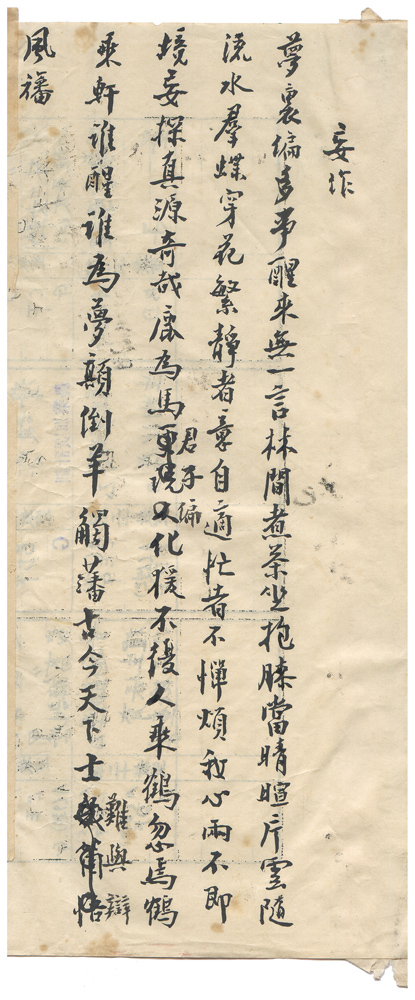 妄作
夢裏偏多事醒來無一言林間煮茶坐抱膝當晴暄片雲隨
流水羣蝶穿花繁靜者意自適忙者不憚煩我心兩不即
境妄探真源奇哉鹿為馬更化猨不人乘鶴忽焉鶴
君子偏
乘軒誰醒誰為夢顛倒羊觸藩古今天下士
難與辯
風旛